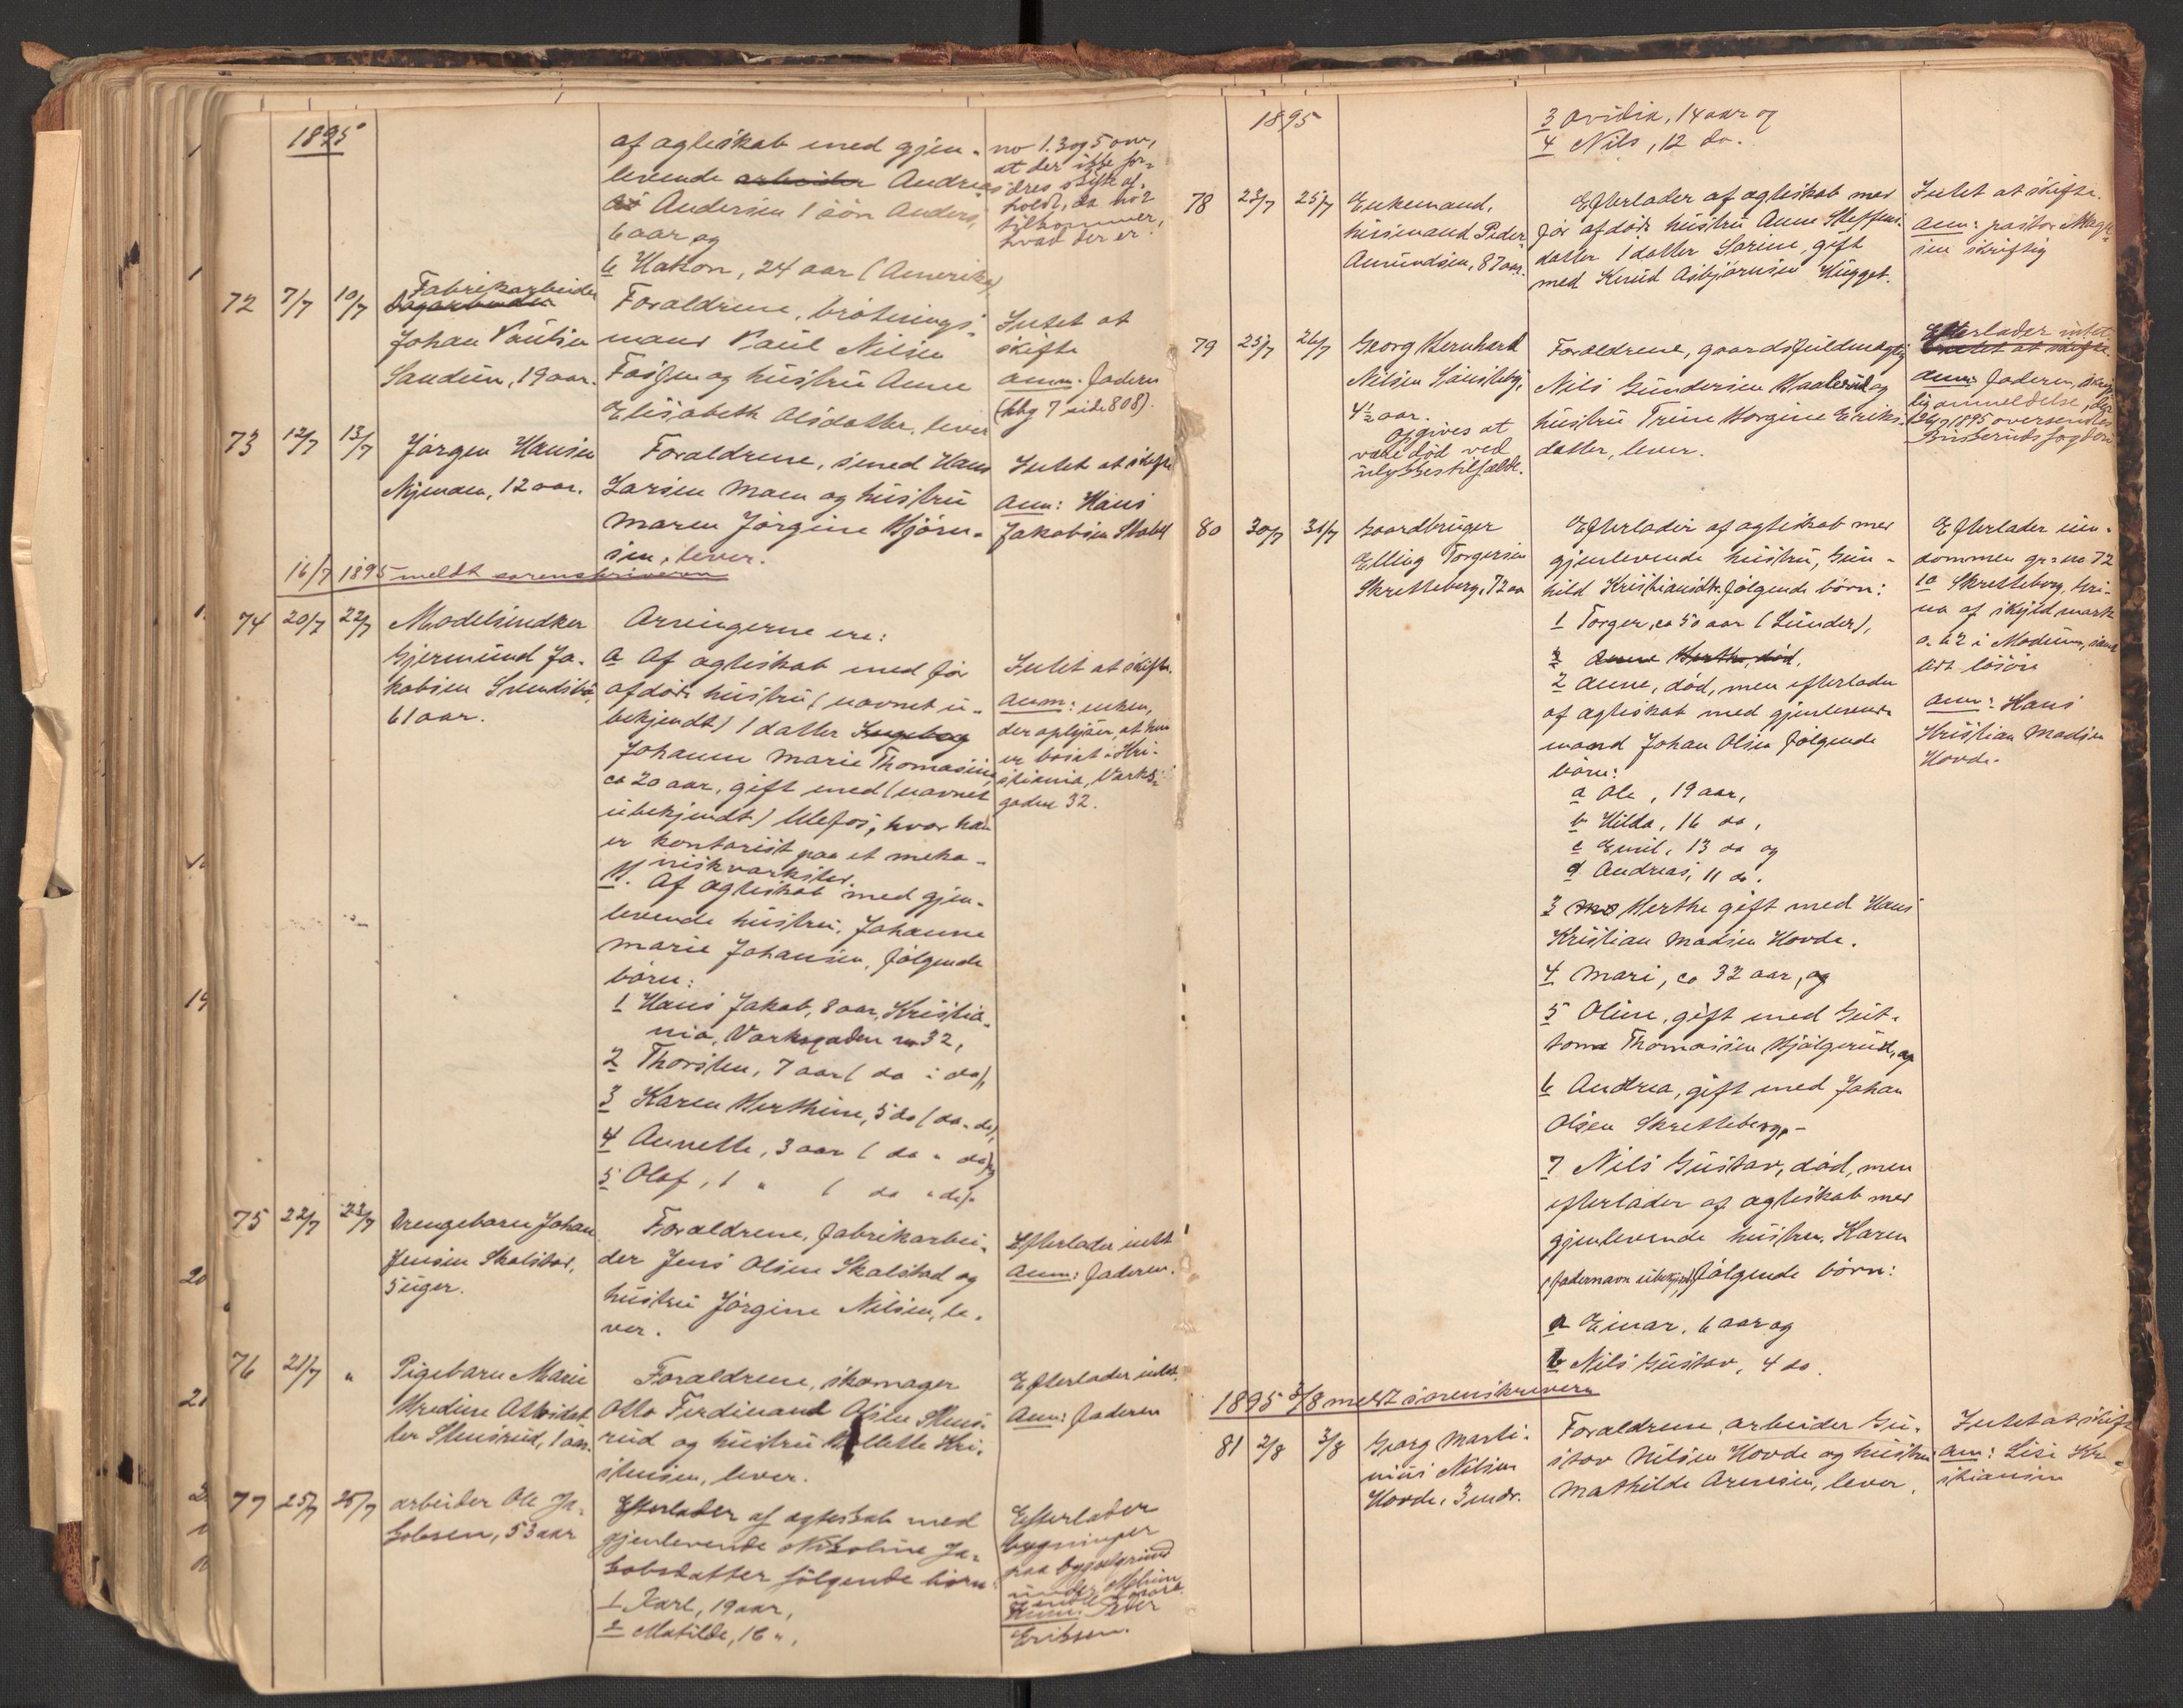 1895
af ægteskab med gjen-
levende arbeider Andreas
Andersen 1 søn Anders,
6 aar og
6 Hakon, 24 aar (Amerika)
no 1. 3 og 5 om,
at der ikke for-
dres skifte af-
holdt, da no 2
tilkommer,
hvad der er.
72 7/7 10/7 Fabrikarbeider
Dagarbeider
Johan Paulsen
Sanden, 19 aar.
Forældrene, brøtnings-
mand Paul Nilsen
Fossen og hustru Anne
Elisabeth Olsdatter, lever
Intet at
skifte
Anm. Faderen
(hbg 7 side 808).
73 12/7 13/7 Jørgen Hansen
Nymoen, 12 aar.
Forældrene, smed Hans
Larsen Moen og hustru
Maren Jørgine Bjørn-
sen, lever.
Intet at skifte
Anm: Hans
Jakobsen
16/7 1895 meldt sorenskriveren
74 20/7 22/7 Modelsnedker
Gjermund Ja-
kobsen
61 aar.
Arvingerne ere:
a Af ægteskab med før
afdøde hustru (navnet u-
bekjendt) 1 datter Ingeborg
Johanne Marie Thomasine,
ca 20 aar, gift med (navnet
ubekjendt) Ulefos, hvor han
er kontorist paa et meka-
nisk værksted.
Af ægteskab med gjen-
levende hustru, Johanne
Marie Johansen, følgende
børn:
1 Hans Jakob, 8 aar, Kristia-
nia, Værksgaden no 32,
2 Thorsten, 7 aar (do - do),
3 Karen Berthine, 5 do (do - do),
4 Annette, 3 aar (do - do) og
5 Olaf, 1 " (do - do).
Intet at skifte.
Anm: enken,
der oplyser, at hun
er bosat i Kri-
stiania, Værks-
gaden 32.
75 22/7 23/7 Drengebarn Johan
Jensen Skalstad,
5 uger.
Forældrene, fabrikarbei-
der Jens Olsen Skalstad og
hustru Jørgine Nilsen, le-
ver.
Efterlader intet
Anm: Faderen.
76 21/7 " Pigebarn Marie
ter Stensrud, 1 aar.
Forældrene, skomager
Otto Ferdinand Olsen Stens-
rud og hustru Kri-
stensen, lever.
Efterlader intet.
Anm: Faderen
77 25/7 25/7 arbeider Ole Ja-
kobsen, 53 aar
Efterlader af ægteskab med
gjenlevende Nikoline Ja-
kobsdatter følgende børn:
1 Karl, 19 aar,
2 Matilde, 16 ",
Efterlader
bygninger
paa bygselgrund
under
Anm: Peder
Eriksen.
1895
3 Ovidia, 14 aar og
4 Nils, 12 do.
78 23/7 25/7 Enkemand,
husmand Peder
Amundsen, 87 aar.
Efterlader af ægteskab med
før afdøde hustru Anne Steffens-
datter 1 datter Sørine, gift
med Knud Asbjørnsen Hugget.
Intet at skifte.
Anm: pastor Magne-
sen skriftlig
79 25/7 26/7 Georg Bernhard
Nilsen
4½ aar.
Opgives at
være død ved
ulykkestilfælde.
Forældrene, gaardsfuldmægtig
Nils Gundersen Haalerud og
hustru Trine Borgine Eriks-
datter, lever.
Efterlader intet
Intet at skifte.
Anm: Faderen, skrift-
lig anmeldelse, der
26/7 1895 oversendtes
Buskeruds fogderi
80 30/7 31/7 Gaardbruger
Elling Torgersen
Skretteberg, 72 aar
Efterlader af ægteskab med
gjenlevende hustru, Gun-
hild Kristiansdtr. følgende børn:
1 Torger, ca 50 aar (Lunder),
2 Anne Berthe, død,
2 Anne, død, men efterlader
af ægteskab med gjenlevende
mand Johan Olsen følgende
børn:
a Ole, 19 aar,
b Hilda, 16 do,
c Emil, 13 do og
d Andreas, 11 do.
3 Berthe gift med Hans
Kristian Madsen Hovde.
4 Mari, ca 32 aar, og
5 Oline, gift med Gut-
torm Thomassen Hjølgerud, og
6 Andrea, gift med Johan
Olsen Skretteberg,-
7 Nils Gustav, død, men
efterlader af ægteskab med
gjenlevende hustru, Karen
(Fadernavn ubekjendt) følgende børn:
a Einar, 6 aar og
b Nils Gustav, 4 do.
Efterlader eien-
dommen gr: no 72
10 Skretteberg,
af skyld mark
0.62 i Modum, samt
lidt løsøre
Anm: Hans
Kristian Madsen
Hovde.
1895 3/8 meldt sorenskriveren
81 2/8 3/8 Georg Marti-
nius Nilsen
Hovde, 3 mdr.
Forældrene, arbeider Gu-
stav Nilsen Hovde og hustru
Mathilde Arnesen, lever.
Intet at skifte
Anm: Lise Kri-
stiansen